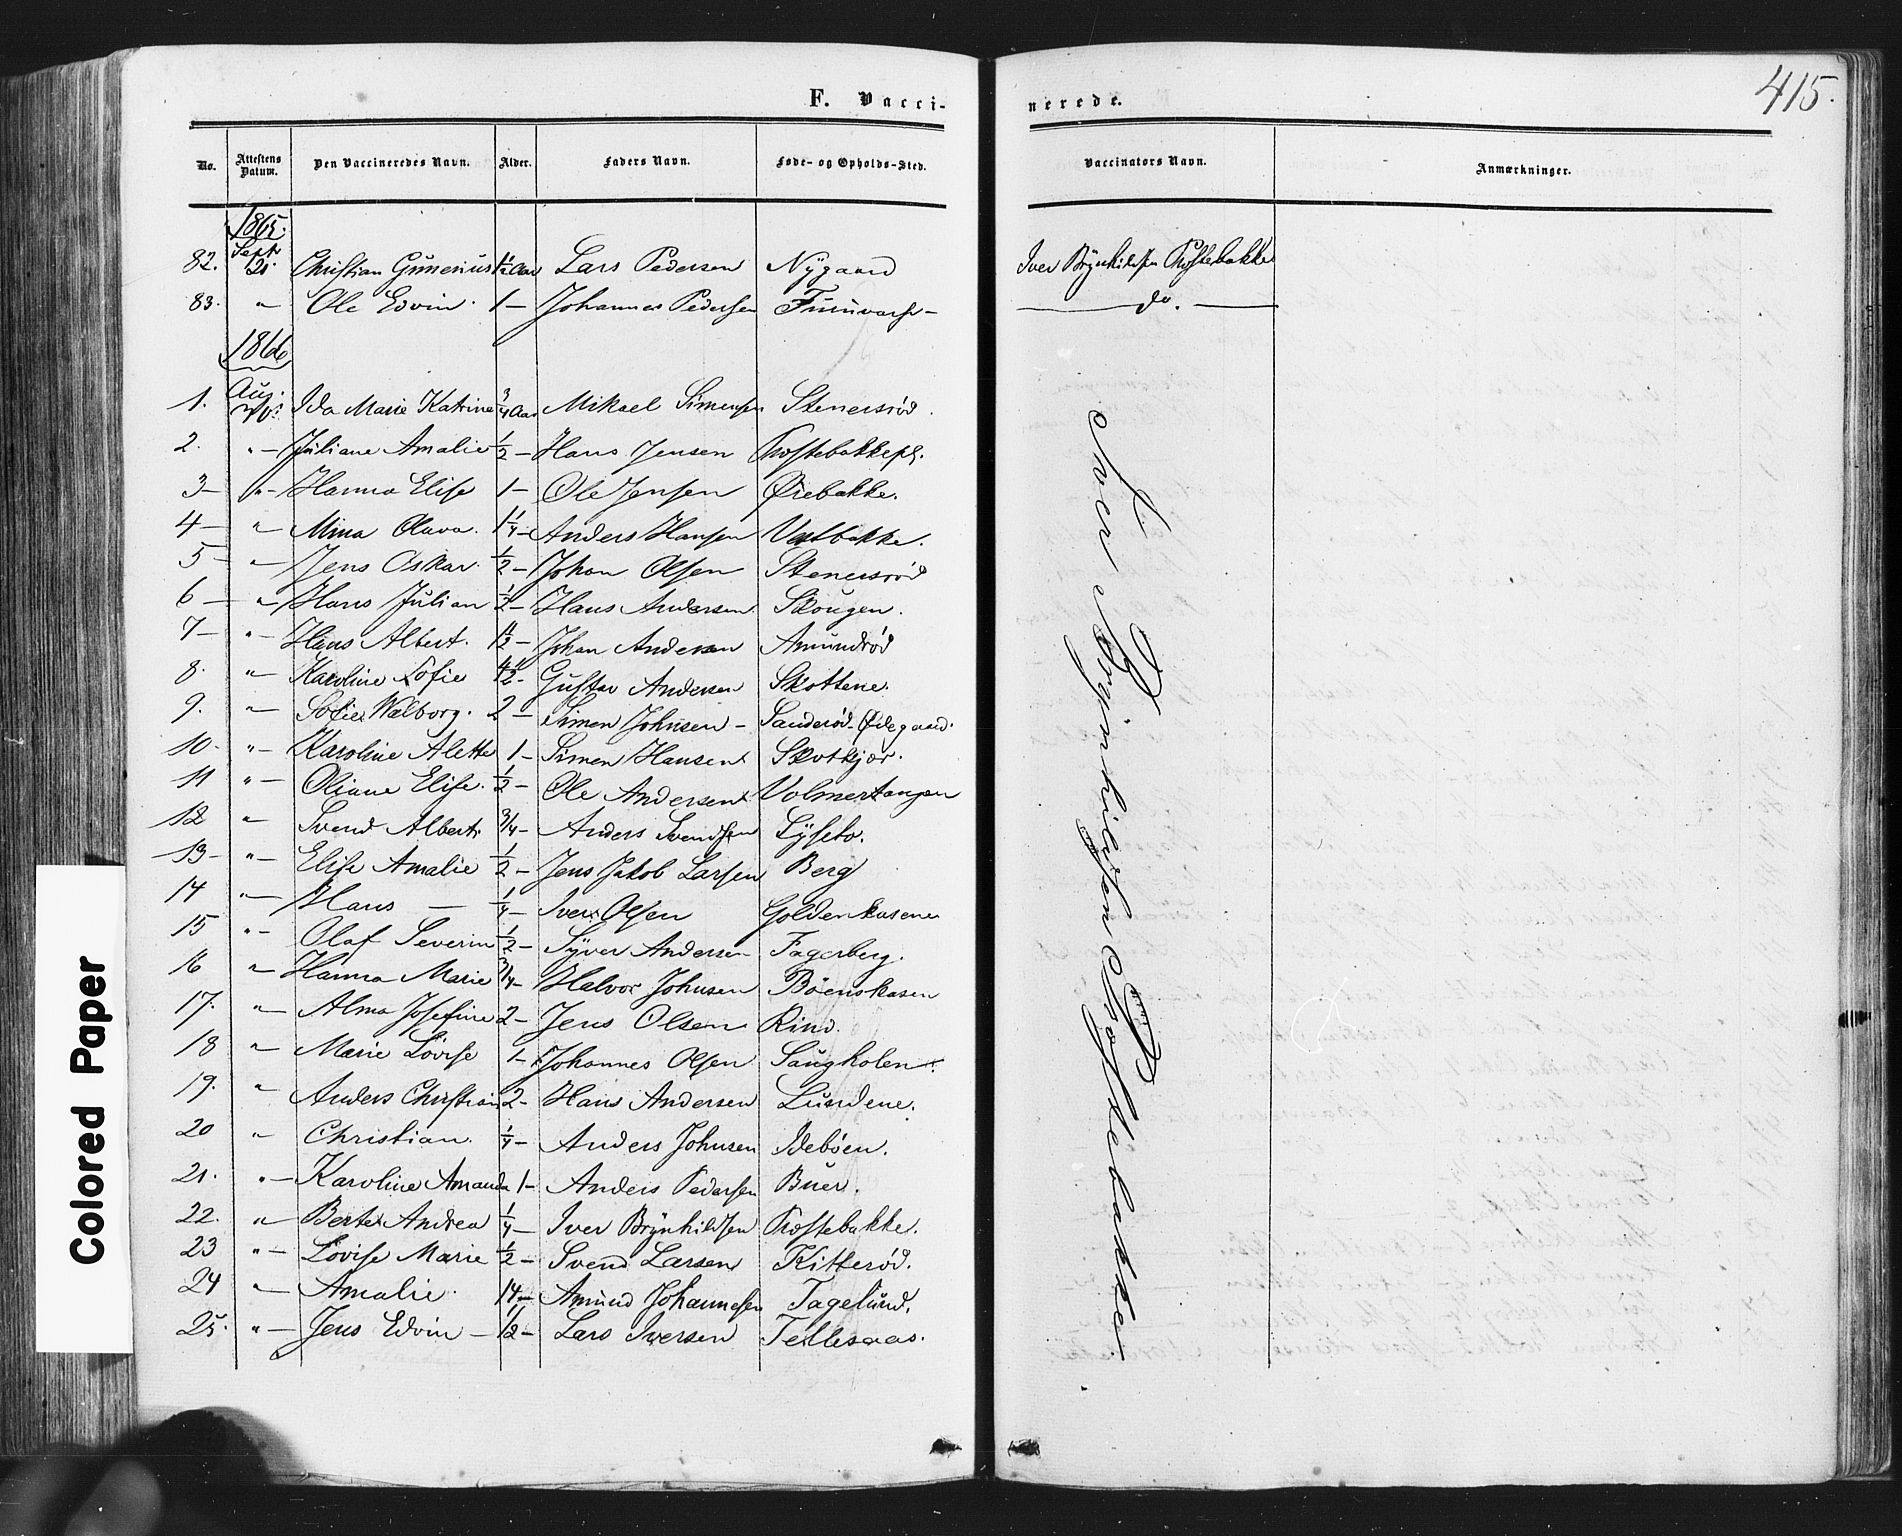 415.
F. Vacci-
nerede.
No. Attestens Datum. Den Vaccineredes Navn. Alder. Faders Navn. Føde- og Opholds-Sted. Vaccinators Navn. Anmærkninger.
1865.
82. Septr 21. Christian Gunerius 1½ Aar Lars Pedersen Nygaard Iver Brynhildsen Koftebakke
83. " Ole Edvin. 1 — Johannes Pedersen do.
1866
1. Aug. Ida Marie Katrine ¾ Aar Mikael Simensen Stenersrød.
2. " — Juliane Amalie ½ — Hans Jensen Koftebakkepl.
3 — " — Hanna Elise 1 — Ole Jensen Ørebakke.
4 — " Mina Olava. 1¼ — Anders Hansen Vestbakke.
5 — " — Jens Oskar. ½ — Johan Olsen Stenersrød
6 — " — Hans Julian ½ — Hans Andersen Skougen.
7 — " — Hans Albert. 1½ — Johan Andersen Amundrød
8. " — Karoline Sofie 4½ - Gustav Andersen Skottene.
9. " — Sofie Walborg. 2 — Simen Johnsen — Sanderød-Ødegaard.
10. " — Karoline Alette 1 — Simen Hansen Skotkjær.
11 " — Oliane Elise. ½ — Ole Andersen Volmertangen
12 " Svend Albert. ¾ — Anders Svendsen Lyseto.
13 — " — Elise Amalie ½ — Jens Jakob Larsen Berg
14 " — Hans — ¼ — Iver Olsen Goldenkasene
15 " — Olaf Severin ½ — Syver Andersen Fagerberg.
16 " — Hanna Marie ¾ — Halvor Johnsen Böenskasen
17. " — Alma Josefine 2 — Jens Olsen Rind.
18 " Marie Lovise 1 — Johannes Olsen Saugholen.
19. " Anders Christian 2 — Hans Andersen Lundene.
20 " Christian. ¼ — Anders Johnsen Idebøen.
21. " — Karoline Amanda 1 — Anders Pedersen Buer.
22. " — Berte Andrea ¼ — Iver Brynhildsen Koftebakke.
23 " — Lovise Marie ½ — Svend Larsen Kitterød.
24 " — Amalie. 14 — Amund Johannesen Fagelund.
25. " — Jens Edvin — ½ — Lars Iversen Tellesaas.
Iver Brynhildsen Koftebakke
Colored Paper